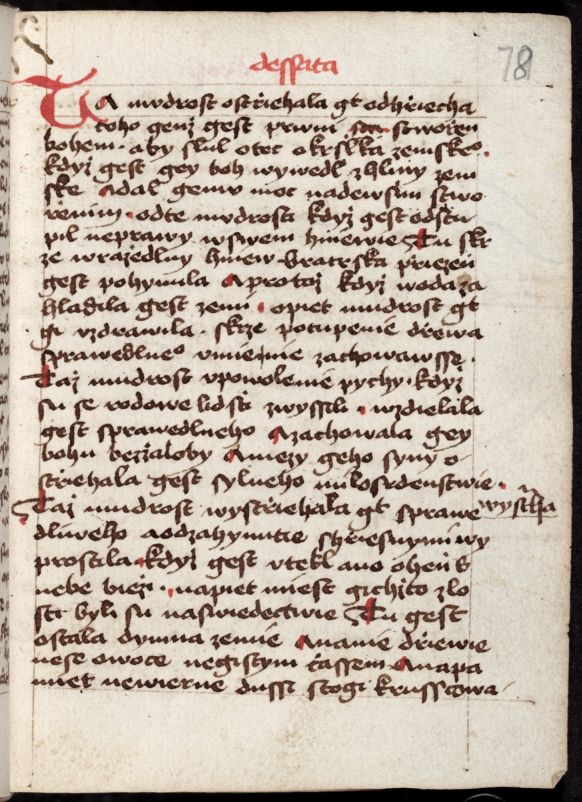 dessata
78
TA mudrost ostriehala gt od hriecha
toho genz gest prwni stworen
bohem. aby slul otec okrslka zemskeo.
kdyz gest gey boh wywedl z hliny zem
ske Adal gemu moc nadewsim stwo
renim. odte mudrosti kdyz gest odstu
pil neprawy wswem hniewie Tu skr
ze wrazedlny hniew bratrska priezen
gest pohynula Aprotoz kdyz woda za
hladila gest zemi. opiet mudrost gt
gi vzdrawila. skrze potupenie drewa
sprawedlneo vmienie zachowawsse.
Taz mudrost vpowolenie pychy. kdyz
su se rodowe lidsti zwyssili. wzdielala
gest sprawedlneho Azachowala gey
bohu bezzaloby Amezy geho syny o
striehala gest sylneho milosrdenstwie.
Taz mudrost wystriehala gt sprawe
wystrha
dliweho aodzahynutie shriessnymi wy
prostila kdyz gest vtekl ano ohen s
nebe biezi. napiet miest gichzto zlo
sti byli su naswiedectwie Tu gest
ostala dymna zemie Amanie driewie
nese owoce negistym cassem Anapa
miet newierne dussi stogi krusscowa